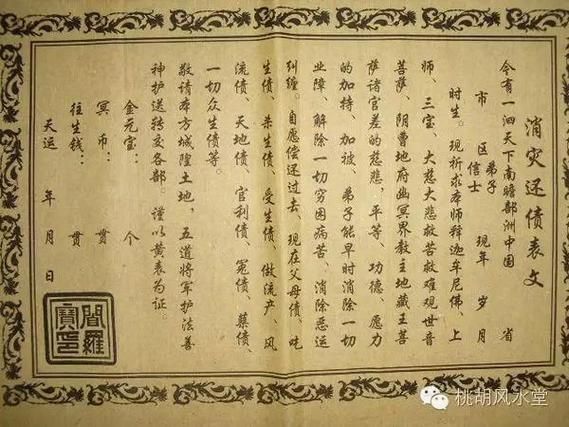 消灾还债表文
今有一泗天下南赡部洲中国　省
市　区弟子信士　现年　岁　月
时生。现祈求本师释迦牟尼佛、上
师、三宝、大慈大悲救苦救难观世音
菩萨、阴曹地府幽冥界教主地藏王菩
萨诸官差的慈悲，平等、功德、愿力
的加持、加被、弟子能早时消除一切
业障、解除一切穷困病苦、消除恶运
纠缠。自愿偿还过去、现在父母债、吃
生债、杀生债、受生债、做流产、风
流债、天地债、官利债、冤债、蔡债、
一切众生债等。
敬请本方城隍土地，五道将军护法善
神护送转交各部。谨以黄表为证。
金元宝：　个
冥币：　贯
往生钱：　贯
天运　年　月　日
閻羅寶印
桃胡风水堂